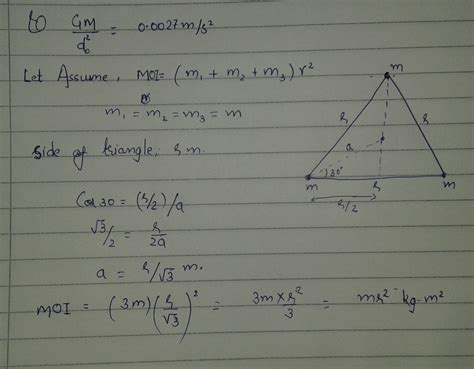 GM/d₀² = 0.0027 m/s²
Let Assume, MOI = (m₁ + m₂ + m₃) r²
m₁ = m₂ = m₃ = m
Side of triangle, r m.
Cos 30 = (r/2)/a
√3/2 = r/2a
a = r/√3 m.
MOI = (3m) (r/√3)² = 3m × r²/3 = mr² kg-m²
m
r
r
a
30°
m
r
m
r/2